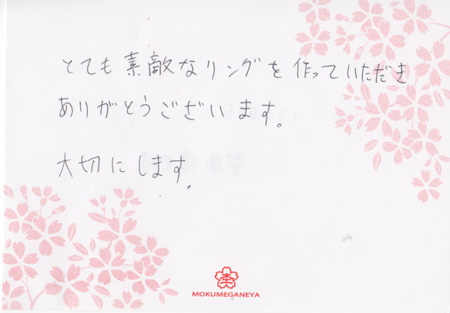 とても素敵なリングを作っていただき
ありがとうございます。
大切にします。
MOKUMEGANEYA